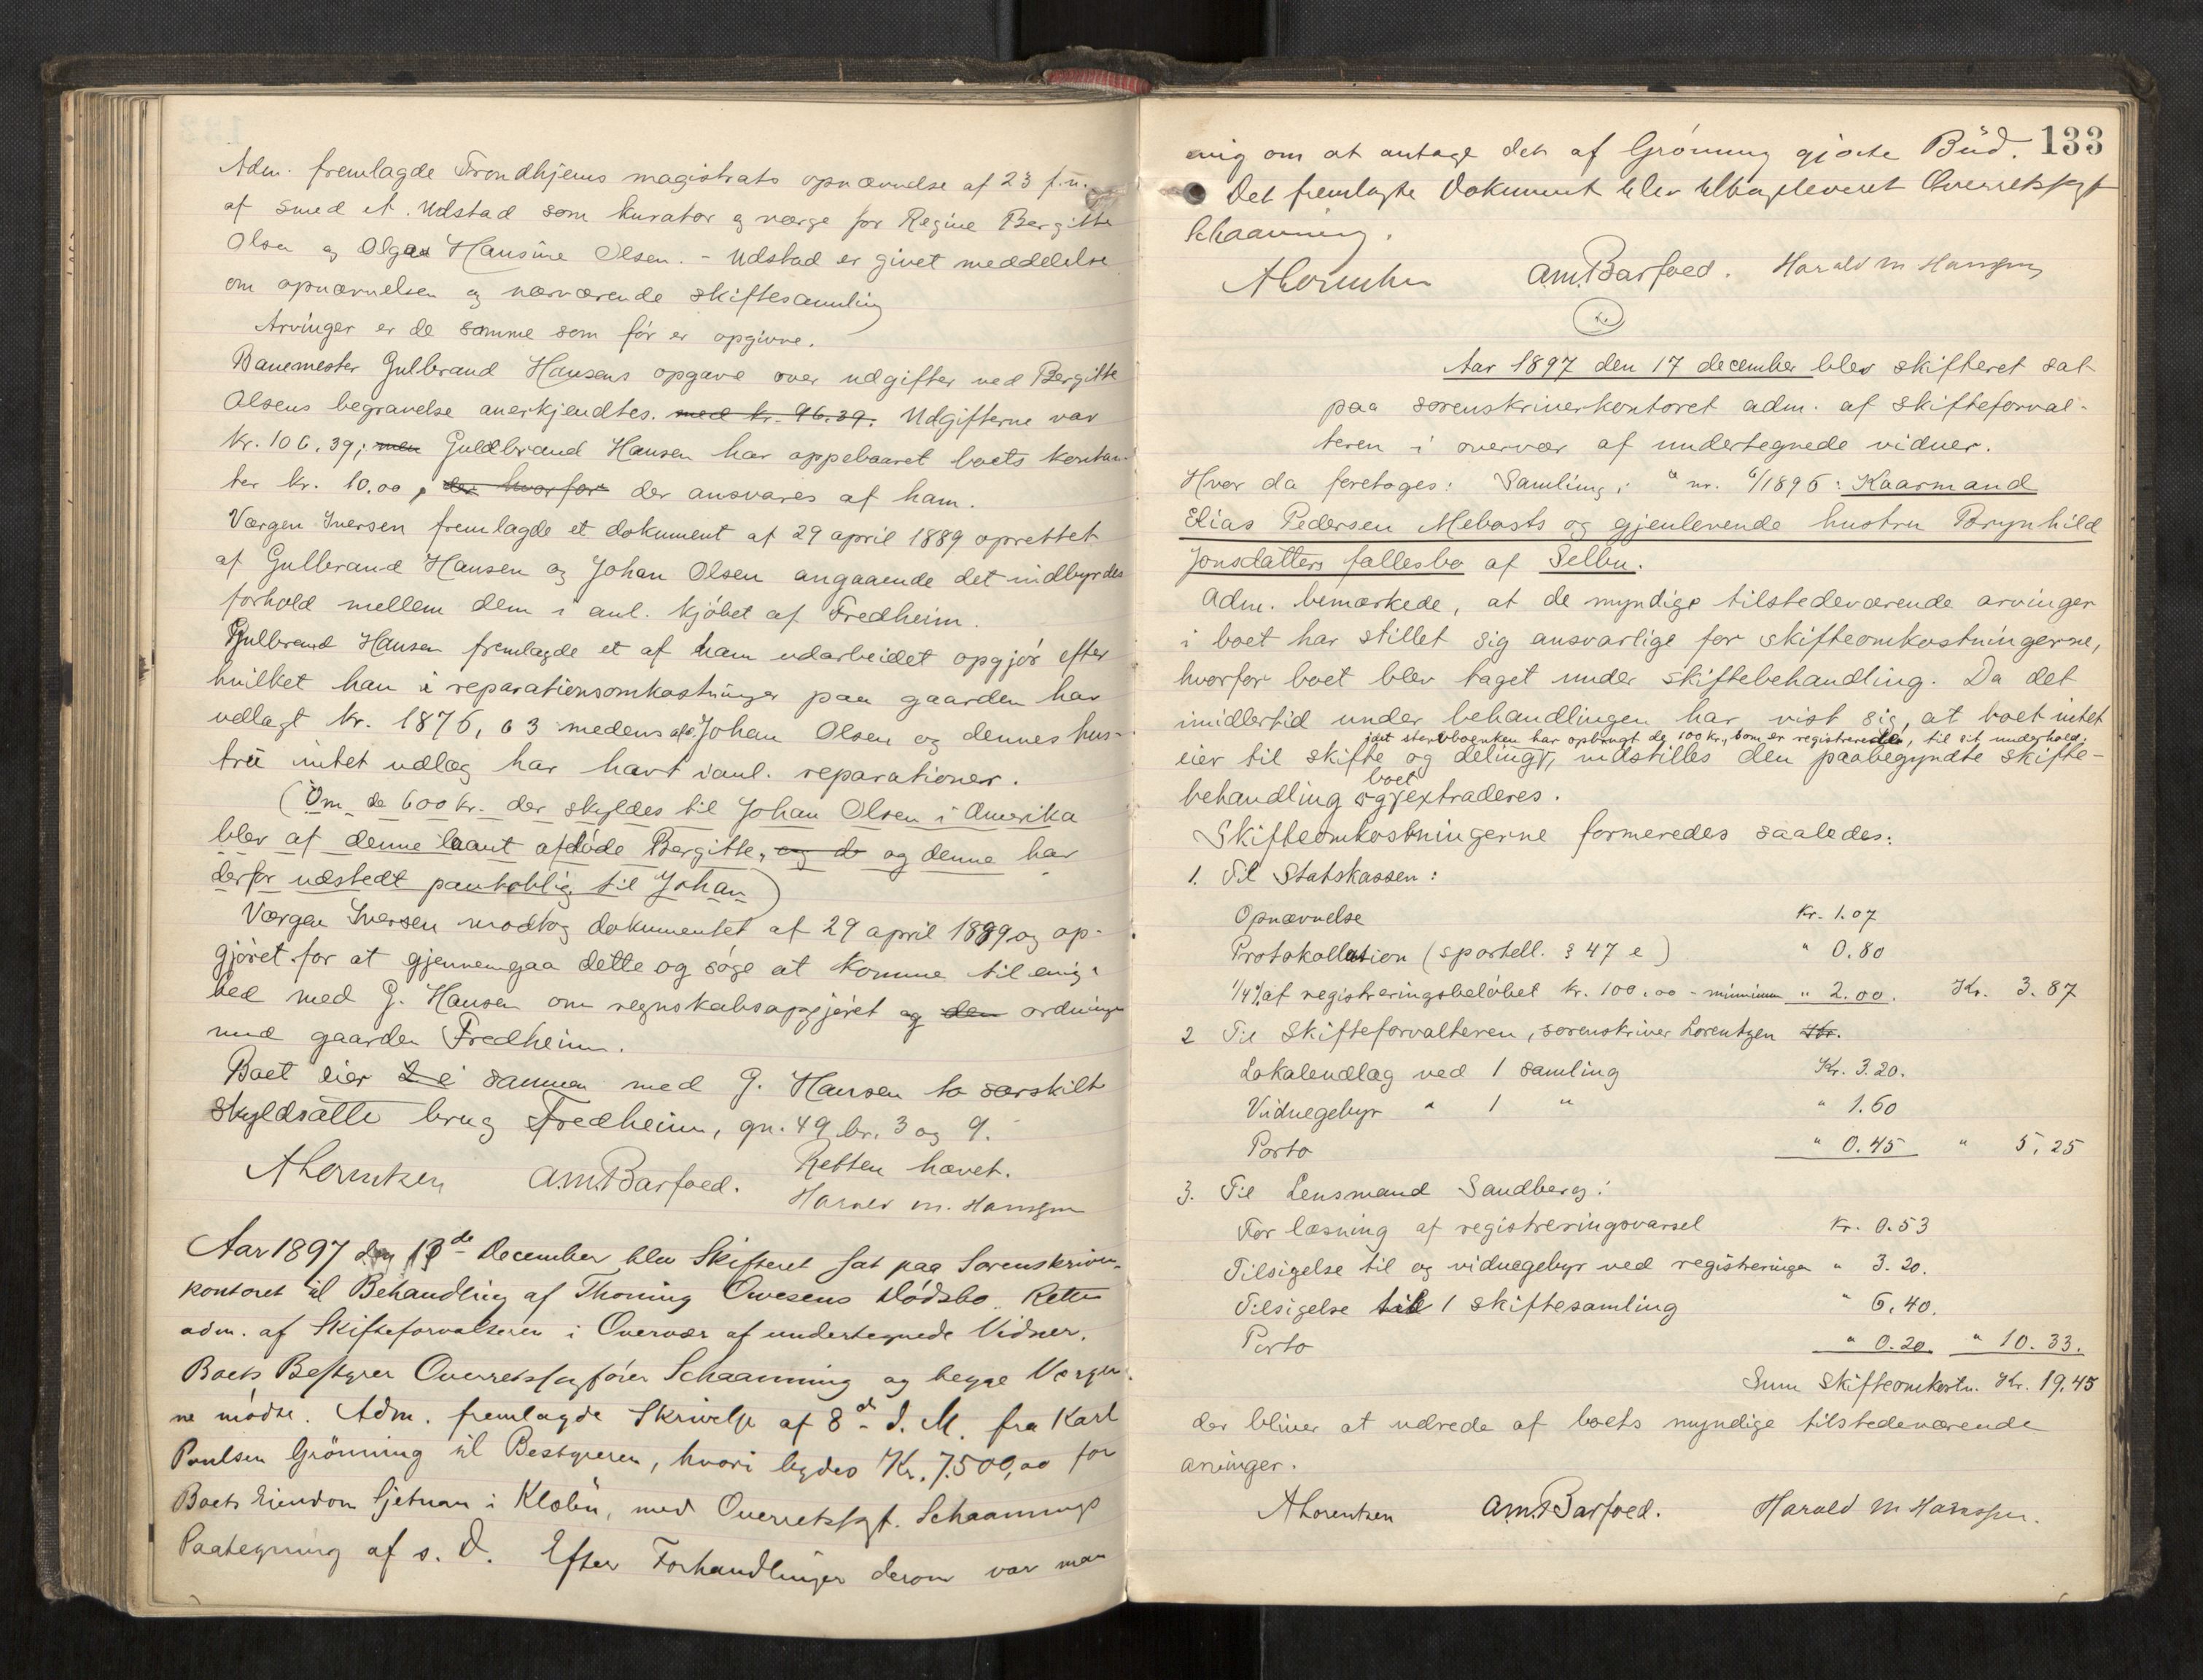 Adm. fremlagde Trondhjems magistrats opnævnelse af 23 f.m.
af smed et. Udstad som kurator og værge for Regine Bergitte
Olsen og Olga Hansine Olsen. - Udstad er givet meddelelse
om opnævnelsen og nærværende skiftesamling
Arvinger er de samme som før er opgivne.
Banemester Gulbrand Hansens opgave over udgifter ved Bergitte
Olsens begravelse anerkjendtes. med kr. 96.39. Udgifterne var
kr. 106,39; men Guldbrand Hansen har oppebaaret boets kontan-
ter kr. 10.00, der hvorfor der ansvares af ham.
Værgen Iversen fremlagde et dokument af 29 april 1889 oprettet
af Gulbrand Hansen og Johan Olsen angaaende det indbyrdes
forhold mellem dem i anl. kjøbet af Fredheim.
Gulbrand Hansen fremlagde et af ham udarbeidet opgjør efter
hvilket han i reparationsomkostninger paa gaarden har
udlagt kr. 1876,63 medens Johan Olsen og dennes hus-
tru intet udlæg har havt i anl. reparationer.
(Om de 600 kr. der skyldes til Johan Olsen i Amerika
blev af denne laant afdøde Bergitte, og d og denne har
derfor udstedt pantoblig. til Johan)
Værgen Iversen modtog dokumentet af 29 april 1889 og op-
gjøret for at gjennemgaa dette og søge at komme til enig-
hed med G. Hansen om regnskabsopgjøret og den ordningen
med gaarden Fredheim.
Boet eier i sammen med G. Hansen to særskilt
skyldsatte brug Fredheim, gn. 49 br. 3 og 9.
Retten hævet.
ALorentzen A.M.Barfoed. Harald M. Hansen
Aar 1897 den 13de December blev Skifteret sat paa Sorenskriver-
kontoret til Behandling af Thoning Owesens Dödsbo. Retten
adm. af Skifteforvalteren i Overvær af undertegnede Vidner.
Boets Bestyrer Overretssagfører Schaanning og begge Værger-
ne mødte. Adm. fremlagde Skrivelse af 8de d. M. fra Karl
Poulsen Grönning til Bestyreren, hvori bydes Kr. 7.500,00 for
Boets Eiendom Sjetnan i Klæbu, med Overretssgf. Schaannings
Paategning af s. D. Efter Forhandlinger derom var man
133
enig om at antage det af Grönning gjorte Büd.
Det fremlagte Dokument blev tilbageleveret Overretssgf
Schaanning.
ALorentzen A.M.Barfoed. Harald M Hansen
Aar 1897 den 17 december blev skifteret sat
paa sorenskriverkontoret adm. af skifteforval-
teren i overvær af undertegnede vidner.
Hvor da foretoges: Samling i nr. 6/1896: Kaarmand
Elias Pedersen Mebosts og gjenlevende hustru Brynhild
Jonsdatters fællesbo af Selbu.
Adm. bemærkede, at de myndige tilstedeværende arvinger
i boet har stillet sig ansvarlige for skifteomkostningerne,
hvorfor boet blev taget under skiftebehandling. Da det
imidlertid under behandlingen har vist sig, at boet intet
idet stervboenken har opbrugt de 100 kr., som er registrerede, til sit underhold,
eier til skifte og deling, indstilles den paabegyndte skifte-
boet
behandling og extraderes.
Skifteomkostningerne formeredes saaledes:
1. Til Statskassen:
Opnævnelse Kr. 1.07
Protokollation (sportell. § 47 e) " 0.80
1/4% af registreringsbeløbet kr. 100.00 - minimum " 2.00. Kr. 3.87
2 Til Skifteforvalteren, sorenskriver Lorentzen Kr.
Lokaleudlæg ved 1 samling Kr. 3.20.
Vidnegebyr " 1 " " 1.60
Porto " 0.45 " 5,25
3. Til Lensmand Sandberg:
For læsning af registreringsvarsel Kr. 0.53
Tilsigelse til og vidnegebyr ved registreringen " 3.20.
Tilsigelse til 1 skiftesamling " 6,40.
Porto " 0.20. " 10.33.
Sum skifteomkostn. Kr. 19,45
der bliver at udrede af boets myndige tilstedeværende
arvinger.
ALorentzen A.M.Barfoed. Harald M Hansen.